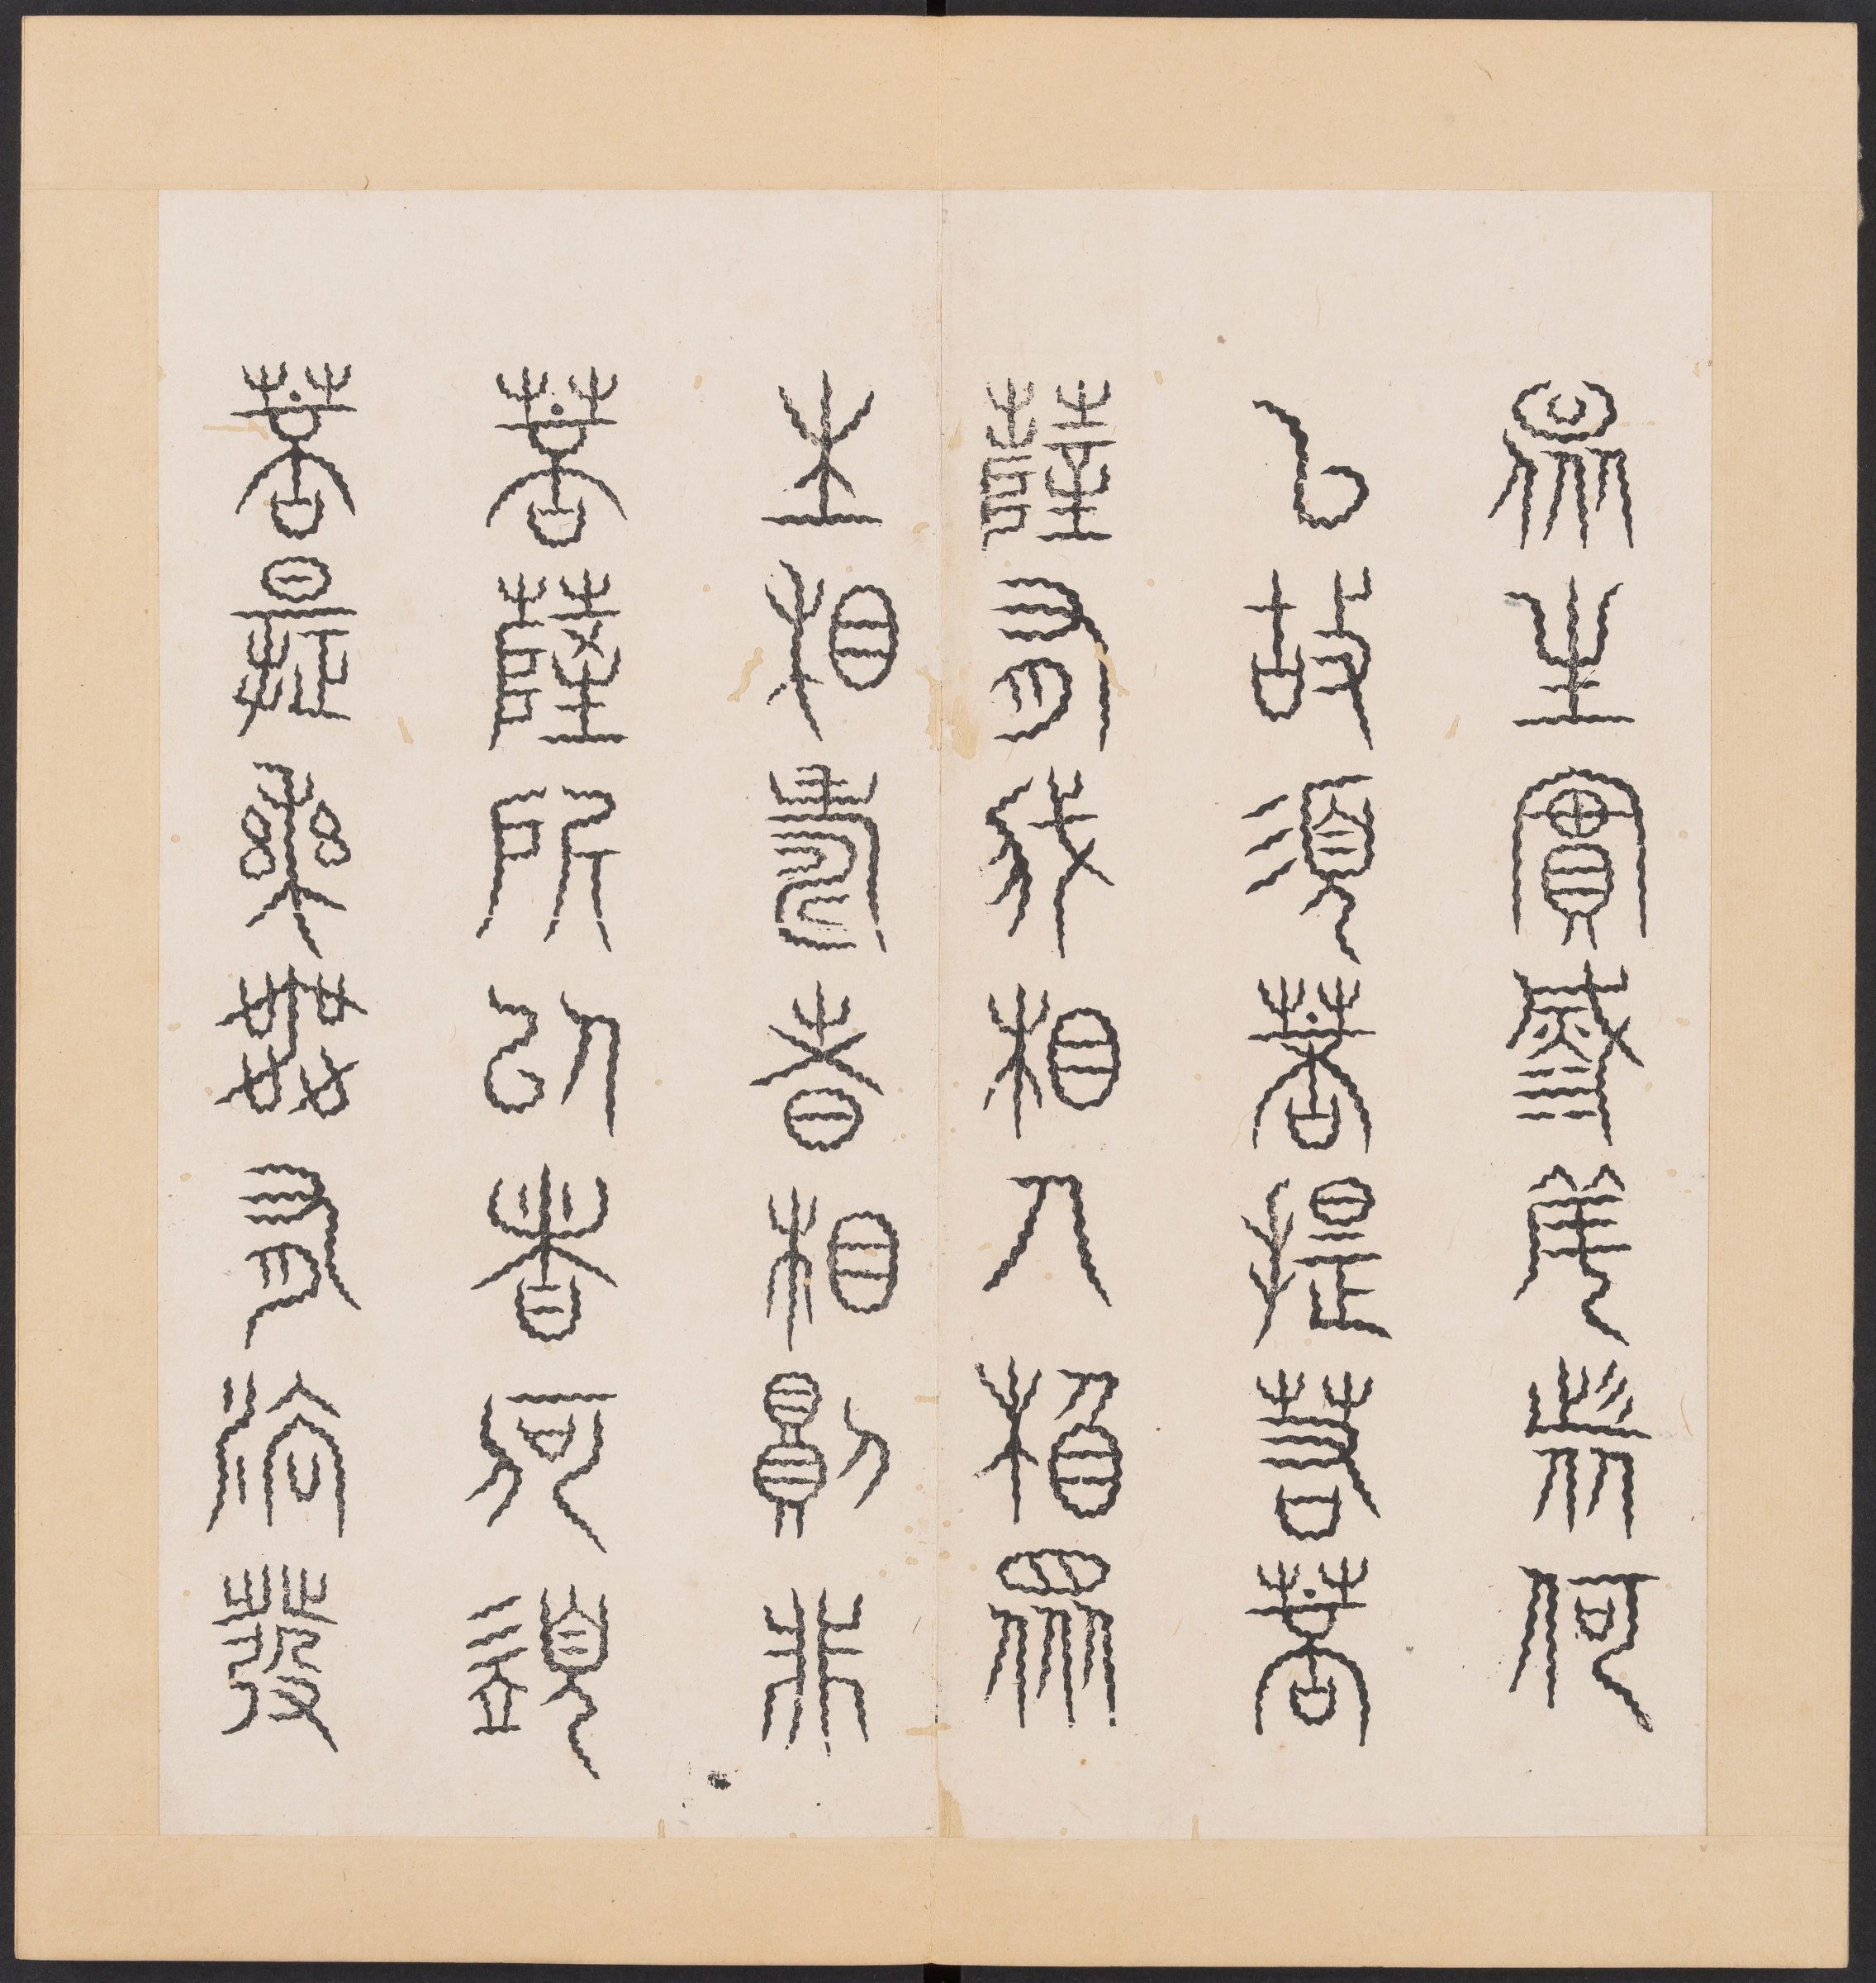 眾生實滅度者何
以故須菩提若菩
薩有我相人相眾
生相壽者相則非
菩薩所以者何須
菩提實無有法發